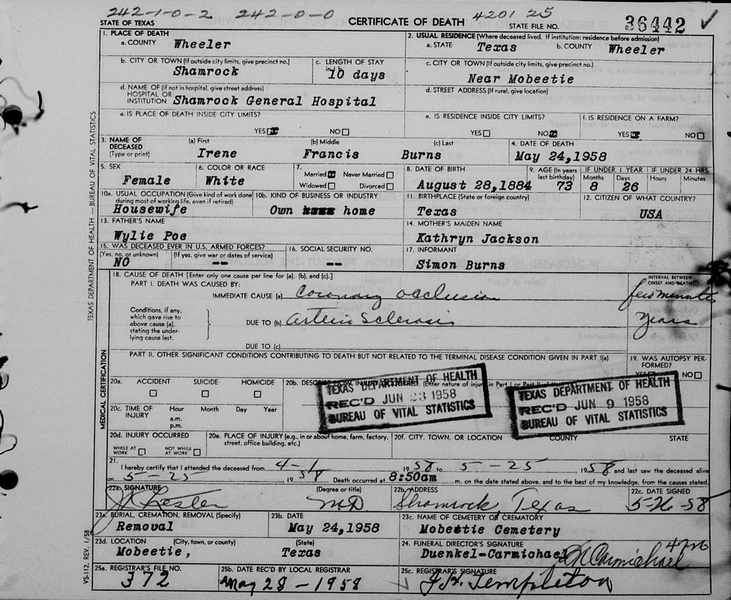 242-1-0-2 242-0-0 4201 25
STATE OF TEXAS CERTIFICATE OF DEATH STATE FILE NO. 36442
1. PLACE OF DEATH 2. USUAL RESIDENCE (Where deceased lived. If institution: residence before admission)
a. COUNTY Wheeler a. STATE Texas b. COUNTY Wheeler
b. CITY OR TOWN (If outside city limits, give precinct no.) c. LENGTH OF STAY c. CITY OR TOWN (If outside city limits, give precinct no.)
Shamrock 10 days Near Mobeetie
d. NAME OF (If not in hospital, give street address) d. STREET ADDRESS (If rural, give location)
HOSPITAL OR
INSTITUTION Shamrock General Hospital
e. IS PLACE OF DEATH INSIDE CITY LIMITS? e. IS RESIDENCE INSIDE CITY LIMITS? f. IS RESIDENCE ON A FARM?
YES NO YES NO YES NO
3. NAME OF DECEASED (a) First (b) Middle (c) Last 4. DATE OF DEATH
(Type or print) Irene Francis Burns May 24,1958
5. SEX 6. COLOR OR RACE 7. Married Never Married 8. DATE OF BIRTH 9. AGE (In years last birthday) IF UNDER 1 YEAR IF UNDER 24 HRS.
Months Days Hours Minutes
Female White Widowed Divorced August 28,1884 73 8 26
10a. USUAL OCCUPATION (Give kind of work done during most of working life, even if retired) 10b. KIND OF BUSINESS OR INDUSTRY 11. BIRTHPLACE (State or foreign country) 12. CITIZEN OF WHAT COUNTRY?
Housewife Own home Texas USA
13. FATHER'S NAME 14. MOTHER'S MAIDEN NAME
Wylie Poe Kathryn Jackson
15. WAS DECEASED EVER IN U.S. ARMED FORCES? 16. SOCIAL SECURITY NO. 17. INFORMANT
(Yes, no, or unknown) (If yes, give war or dates of service)
NO -- -- Simon Burns
18. CAUSE OF DEATH [Enter only one cause per line for (a), (b), and (c).] INTERVAL BETWEEN ONSET AND DEATH
PART I. DEATH WAS CAUSED BY:
IMMEDIATE CAUSE (a) Coronary occlusion few minutes
Conditions, if any, which gave rise to above cause (a), stating the underlying cause last.
DUE TO (b) Arterio Sclerosis Years
DUE TO (c)
PART II. OTHER SIGNIFICANT CONDITIONS CONTRIBUTING TO DEATH BUT NOT RELATED TO THE TERMINAL DISEASE CONDITION GIVEN IN PART I(a) 19. WAS AUTOPSY PERFORMED?
YES NO
20a. ACCIDENT SUICIDE HOMICIDE 20b. DESCRIBE
TEXAS DEPARTMENT OF HEALTH
REC'D JUN 23 1958
BUREAU OF VITAL STATISTICS
TEXAS DEPARTMENT OF HEALTH
REC'D JUN 9 1958
BUREAU OF VITAL STATISTICS
20c. TIME OF INJURY Hour Month Day Year
a.m.
p.m.
20d. INJURY OCCURRED 20e. PLACE OF INJURY (e.g., in or about home, farm, factory, street, office building, etc.) 20f. CITY, TOWN, OR LOCATION COUNTY STATE
WHILE AT WORK NOT WHILE AT WORK
21. I hereby certify that I attended the deceased from 4-1 1958 to 5-25 1958 and last saw the deceased alive
on 5-25 1958 Death occurred at 8:50am m. on the date stated above, and to the best of my knowledge, from the causes stated.
22a. SIGNATURE (Degree or title) 22b. ADDRESS 22c. DATE SIGNED
MD Shamrock, Texas 5-26-58
23a. BURIAL, CREMATION, REMOVAL (Specify) 23b. DATE 23c. NAME OF CEMETERY OR CREMATORY
Removal May 24,1958 Mobeetie Cemetery
23d. LOCATION (City, town, or county) (State) 24. FUNERAL DIRECTOR'S SIGNATURE
Mobeetie, Texas Duenkel-Carmichael Carmichael
25a. REGISTRAR'S FILE NO. 25b. DATE REC'D BY LOCAL REGISTRAR 25c. REGISTRAR'S SIGNATURE
372 May 28-1958 Templeton
TEXAS DEPARTMENT OF HEALTH — BUREAU OF VITAL STATISTICS
MEDICAL CERTIFICATION
VS-112, REV. 1/58